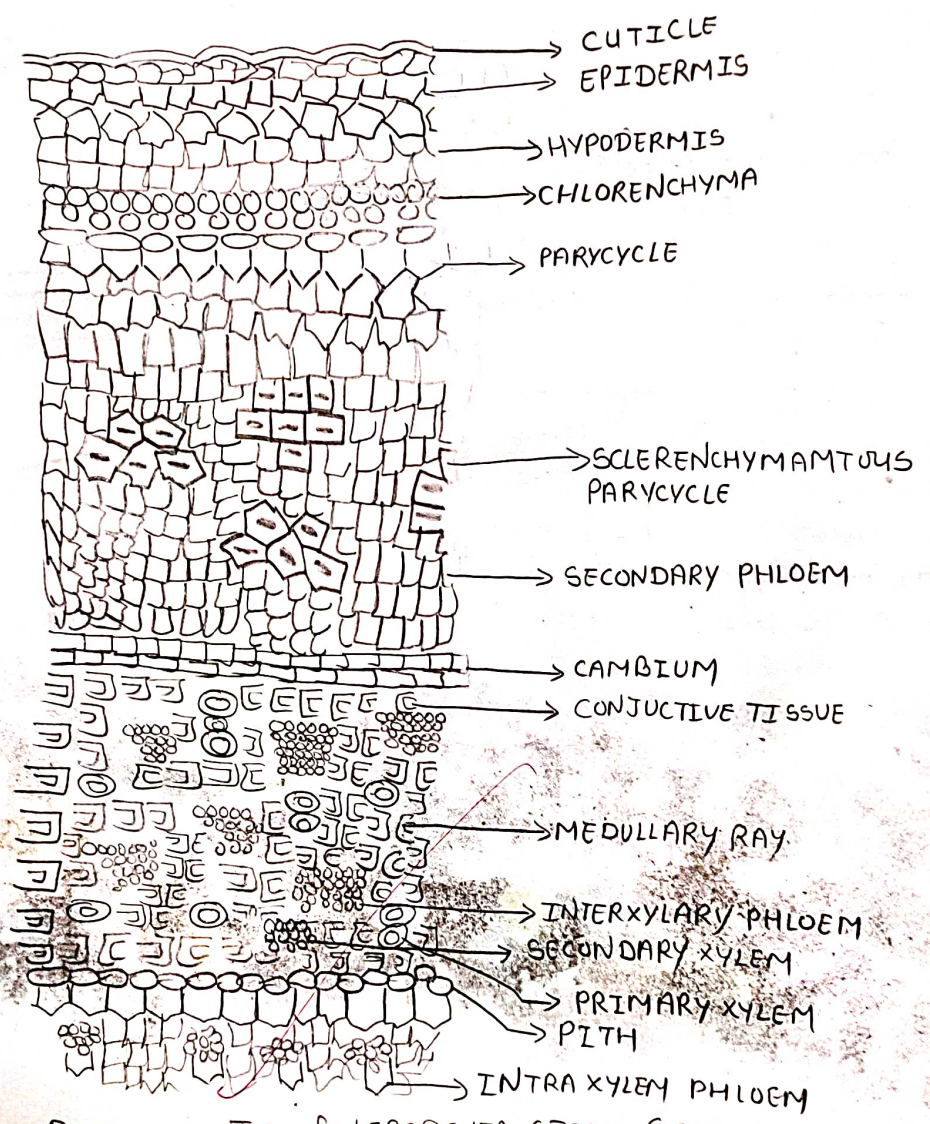 CUTICLE
EPIDERMIS
HYPODERMIS
CHLORENCHYMA
PARYCYCLE
SCLERENCHYMAMTOUS
PARYCYCLE
SECONDARY PHLOEM
CAMBIUM
CONJUCTIVE TISSUE
MEDULLARY RAY
INTERXYLARY PHLOEM
SECONDARY XYLEM
PRIMARY XYLEM
PITH
INTRA XYLEM PHLOEM